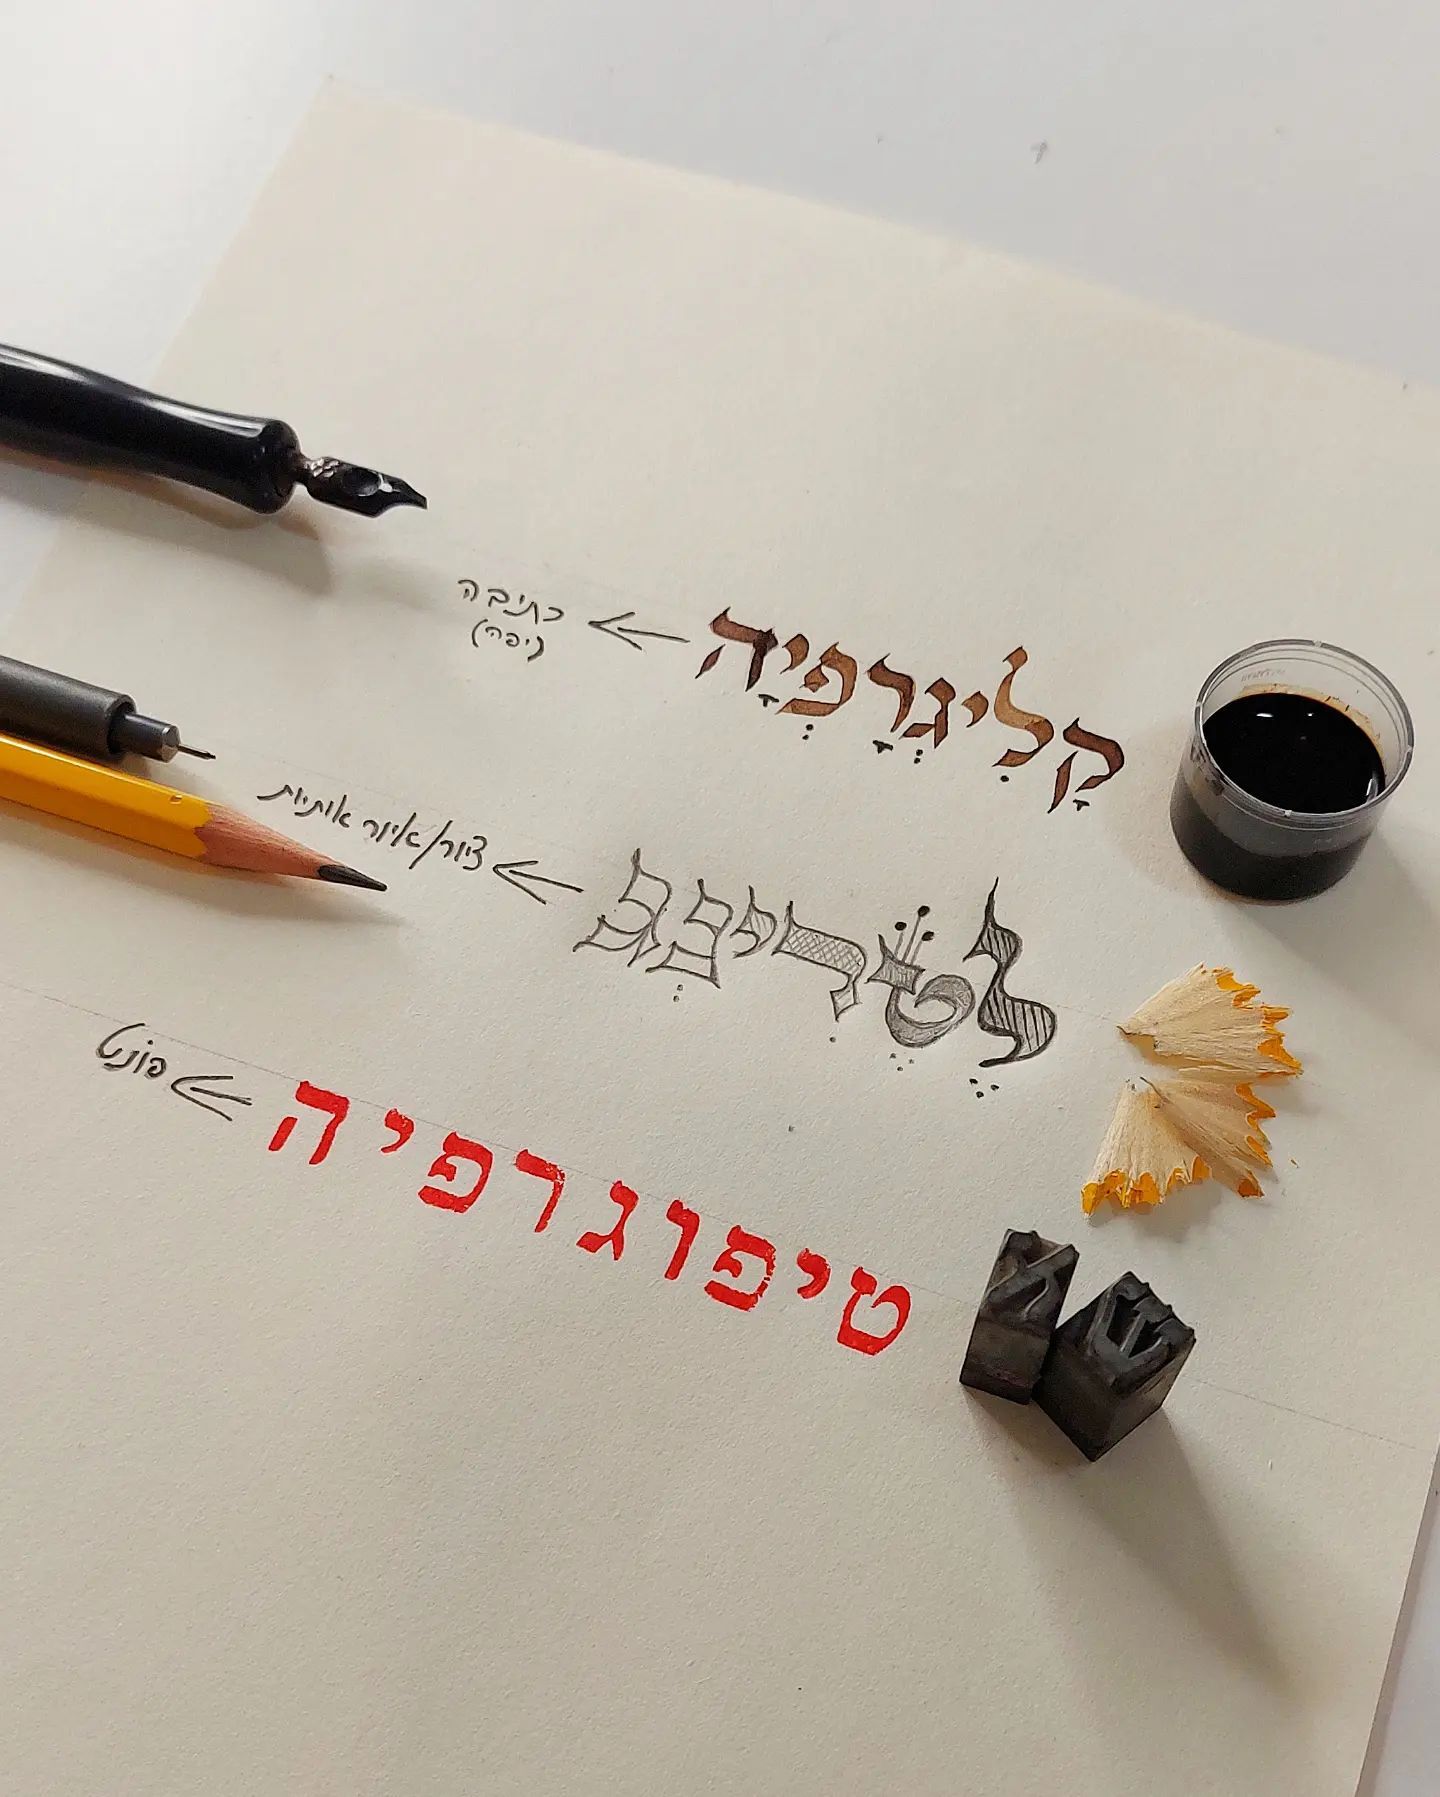 קָלִיגְרַפְיָה ← כתיבה
(יפה)
לֶטֶרִינְג ← ציור/איור אותיות
טיפוגרפיה ← פוֹנט
א
ש